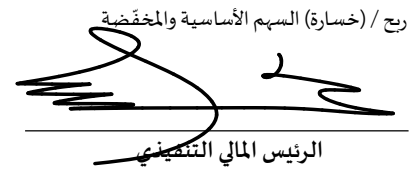 ربح / (خسارة) السهم الأساسية والمخفّضة
الرئيس المالي التنفيذي